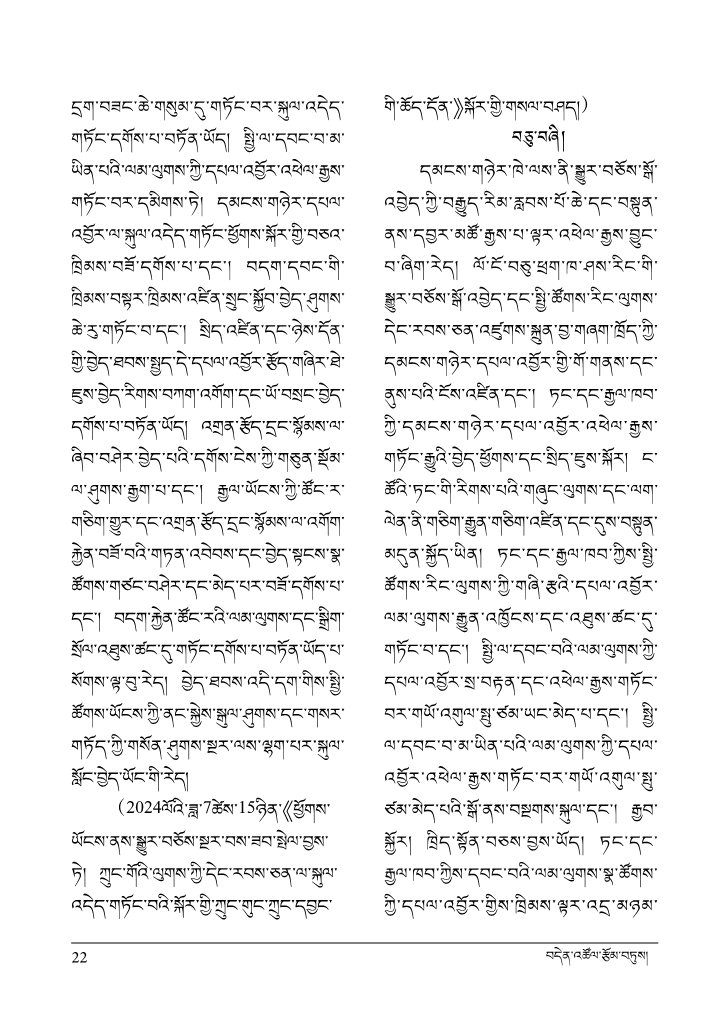 དྲག་བཟང་ཆེ་གསུམ་དུ་གཏོང་བར་སྐུལ་འདེད་
གཏོང་དགོས་པ་བཏོན་ཡོད། སྤྱི་ལ་དབང་བ་མ་
ཡིན་པའི་ལམ་ལུགས་ཀྱི་དཔལ་འབྱོར་འཕེལ་རྒྱས་
གཏོང་བར་དམིགས་ཏེ། དམངས་གཉེར་དཔལ་
འབྱོར་ལ་སྐུལ་འདེད་གཏོང་ཕྱོགས་སྐོར་གྱི་བཅའ་
ཁྲིམས་བཟོ་དགོས་པ་དང་། བདག་དབང་གི་
ཁྲིམས་བསྟར་ཁྲིམས་འཛིན་སྲུང་སྐྱོབ་བྱེད་ཤུགས་
ཆེ་རུ་གཏོང་བ་དང་། སྲིད་འཛིན་དང་ཉེས་དོན་
གྱི་བྱེད་ཐབས་སྤྱད་དེ་དཔལ་འབྱོར་རྩོད་གཞིར་ཐེ་
ཇུས་བྱེད་རིགས་བཀག་འགོག་དང་ཡོ་བསྲང་བྱེད་
དགོས་པ་བཏོན་ཡོད། འགྲན་རྩོད་དྲང་སྙོམས་ལ་
ཞིབ་བཤེར་བྱེད་པའི་དགོས་ངེས་ཀྱི་གཅུན་སྡོམ་
ལ་ཤུགས་རྒྱག་པ་དང་། རྒྱལ་ཡོངས་ཀྱི་ཚོང་ར་
གཅིག་གྱུར་དང་འགྲན་རྩོད་དྲང་སྙོམས་ལ་འགོག་
རྐྱེན་བཟོ་བའི་གཏན་འབེབས་དང་བྱེད་སྟངས་སྣ་
ཚོགས་གཙང་བཤེར་དང་མེད་པར་བཟོ་དགོས་པ་
དང་། བདག་རྐྱེན་ཚོང་རའི་ལམ་ལུགས་དང་སྒྲིག་
སྲོལ་འཐུས་ཚང་དུ་གཏོང་དགོས་པ་བཏོན་ཡོད་པ་
སོགས་ལྟ་བུ་རེད། བྱེད་ཐབས་འདི་དག་གིས་སྤྱི་
ཚོགས་ཡོངས་ཀྱི་ནང་སྐྱེས་སྒུལ་ཤུགས་དང་གསར་
གཏོད་ཀྱི་གསོན་ཤུགས་སྔར་ལས་ལྷག་པར་སྐུལ་
སློང་བྱེད་ཡོང་གི་རེད།
（2024ལོའི་ཟླ་7ཚེས་15ཉིན་《ཕྱོགས་
ཡོངས་ནས་སྒྱུར་བཅོས་སྔར་བས་ཟབ་སྤེལ་བྱས་
ཏེ། ཀྲུང་གོའི་ལུགས་ཀྱི་དེང་རབས་ཅན་ལ་སྐུལ་
འདེད་གཏོང་བའི་སྐོར་གྱི་ཀྲུང་གུང་ཀྲུང་དབྱང་
གི་ཆོད་དོན་》སྐོར་གྱི་གསལ་བཤད།）
བཅུ་བཞི།
དམངས་གཉེར་ཁེ་ལས་ནི་སྒྱུར་བཅོས་སྒོ་
འབྱེད་ཀྱི་བརྒྱུད་རིམ་རླབས་པོ་ཆེ་དང་བསྟུན་
ནས་དབྱར་མཚོ་རྒྱས་པ་ལྟར་འཕེལ་རྒྱས་བྱུང་
བ་ཞིག་རེད། ལོ་ངོ་བཅུ་ཕྲག་ཁ་ཤས་རིང་གི་
སྒྱུར་བཅོས་སྒོ་འབྱེད་དང་སྤྱི་ཚོགས་རིང་ལུགས་
དེང་རབས་ཅན་འཛུགས་སྐྲུན་བྱ་གཞག་ཁྲོད་ཀྱི་
དམངས་གཉེར་དཔལ་འབྱོར་གྱི་གོ་གནས་དང་
ནུས་པའི་ངོས་འཛིན་དང་། ཏང་དང་རྒྱལ་ཁབ་
ཀྱི་དམངས་གཉེར་དཔལ་འབྱོར་འཕེལ་རྒྱས་
གཏོང་རྒྱུའི་བྱེད་ཕྱོགས་དང་སྲིད་ཇུས་སྐོར། ང་
ཚོའི་ཏང་གི་རིགས་པའི་གཞུང་ལུགས་དང་ལག་
ལེན་ནི་གཅིག་རྒྱུན་གཅིག་འཛིན་དང་དུས་བསྟུན་
མདུན་སྐྱོད་ཡིན། ཏང་དང་རྒྱལ་ཁབ་ཀྱིས་སྤྱི་
ཚོགས་རིང་ལུགས་ཀྱི་གཞི་རྩའི་དཔལ་འབྱོར་
ལམ་ལུགས་རྒྱུན་འཁྱོངས་དང་འཐུས་ཚང་དུ་
གཏོང་བ་དང་། སྤྱི་ལ་དབང་བའི་ལམ་ལུགས་ཀྱི་
དཔལ་འབྱོར་སྲ་བརྟན་དང་འཕེལ་རྒྱས་གཏོང་
བར་གཡོ་འགུལ་སྤུ་ཙམ་ཡང་མེད་པ་དང་། སྤྱི་
ལ་དབང་བ་མ་ཡིན་པའི་ལམ་ལུགས་ཀྱི་དཔལ་
འབྱོར་འཕེལ་རྒྱས་གཏོང་བར་གཡོ་འགུལ་སྤུ་
ཙམ་མེད་པའི་སྒོ་ནས་བསྔགས་སྐུལ་དང་། རྒྱབ་
སྐྱོར། ཁྲིད་སྟོན་བཅས་བྱས་ཡོད། ཏང་དང་
རྒྱལ་ཁབ་ཀྱིས་དབང་བའི་ལམ་ལུགས་སྣ་ཚོགས་
ཀྱི་དཔལ་འབྱོར་གྱིས་ཁྲིམས་ལྟར་འདྲ་མཉམ་
22
བདེན་འཚོལ་རྩོམ་བཏུས།